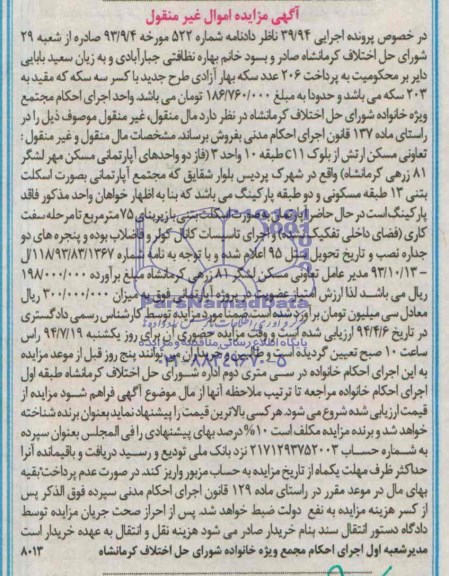 آگهی مزایده اموال غیر منقول
در خصوص پرونده اجرایی ۳۹/۹۴ ناظر دادنامه شماره ۵۲۲ مورخه ۹۳/۹/۴ صادره از شعبه ۲۹
شورای حل اختلاف کرمانشاه صادر و بسود خانم بهاره نظافتی جبارآبادی و به زیان سعید بابایی
دایر بر محکومیت به پرداخت ۲۰۶ عدد سکه بهار آزادی طرح جدید با کسر سه سکه که مقید به
۲۰۳ سکه می باشد و حدودا به مبلغ ۱۸۶/۷۶۰/۰۰۰ تومان می باشد. واحد اجرای احکام مجتمع
ویژه خانواده شورای حل اختلاف کرمانشاه در نظر دارد مال منقول، غیر منقول موصوف ذیل را در
راستای ماده ۱۳۷ قانون اجرای احکام مدنی بفروش برساند. مشخصات مال منقول و غیر منقول :
تعاونی مسکن ارتش از بلوک C11 طبقه ۱۰ واحد ۳ (فاز دو واحدهای آپارتمانی مسکن مهر لشگر
۸۱ زرهی کرمانشاه) واقع در شهرک پردیس بلوار شقایق که مجتمع آپارتمانی بصورت اسکلت
بتنی ۱۳ طبقه مسکونی و دو طبقه پارکینگ می باشد که بنا به اظهار خواهان واحد مذکور فاقد
پارکینگ است در حال حاضر آپارتمان بصورت اسکلت بتنی با زیربنای ۷۵ مترمربع تا مرحله سفت
کاری (فضای داخلی تفکیک شده) و اجرای تاسیسات کانال کولر و فاضلاب بوده و پنجره های دو
جداره نصب و تاریخ تحویل اسل ۹۵ اعلام شده و با توجه به نامه شماره ۱۱۸/۹۳/۸۳/۱۳۶۷/ال
– ۹۳/۱۰/۱۳ مدیر عامل تعاونی مسکن لشگر ۸۱ زرهی کرمانشاه مبلغ برآورده ۱۹۸/۰۰۰/۰۰۰
ریال می باشد لذا ارزش امتیاز عضویت در پروژه آپارتمانی فوق به میزان ۳۰۰/۰۰۰/۰۰۰ ریال
معادل سی میلیون تومان برآورد شده است ضمنا مورد مزایده توسط کارشناس رسمی دادگستری
در تاریخ ۹۴/۴/۶ ارزیابی شده است و وقت مزایده حضوری آن برای روز یکشنبه ۹۴/۷/۱۹ راس
ساعت ۱۰ صبح تعیین گردیده است و طالبین و خریداران می توانند پنج روز قبل از موعد مزایده
به این اجرای احکام خانواده در سی متری دوم اداره شورای حل اختلاف کرمانشاه طبقه اول
اجرای احکام خانواده مراجعه تا ترتیب ملاحظه آنها از مال موضوع آگهی فراهم شود مزایده از
قیمت ارزیابی شده شروع می شود. هر کسی بالاترین قیمت را پیشنهاد نماید بعنوان برنده شناخته
خواهد شد و برنده مزایده مکلف است ۱۰٪ درصد بهای پیشنهادی را فی المجلس بعنوان سپرده
به شماره حساب ۲۱۷۱۲۹۳۷۵۲۰۰۳ نزد بانک ملی تودیع و رسید دریافت و باقیمانده آنرا
حداکثر ظرف مهلت یکماه از تاریخ مزایده به حساب مزبور واریز کند. در صورت عدم پرداخت بقیه
بهای مال در موعد مقرر در راستای ماده ۱۲۹ قانون اجرای احکام مدنی سپرده فوق الذکر پس
از کسر هزینه مزایده به نفع دولت ضبط خواهد شد. پس از احراز صحت جریان مزایده توسط
دادگاه دستور انتقال سند بنام خریدار صادر می شود هزینه نقل و انتقال به عهده خریدار است
مدیر شعبه اول اجرای احکام مجمع ویژه خانواده شورای حل اختلاف کرمانشاه ۸۰۱۳
ParsNamadData
پایگاه اطلاع رسانی مناقصه و مزایده
۰۲۱-۸۸۳۴۹۶۷۰-۵